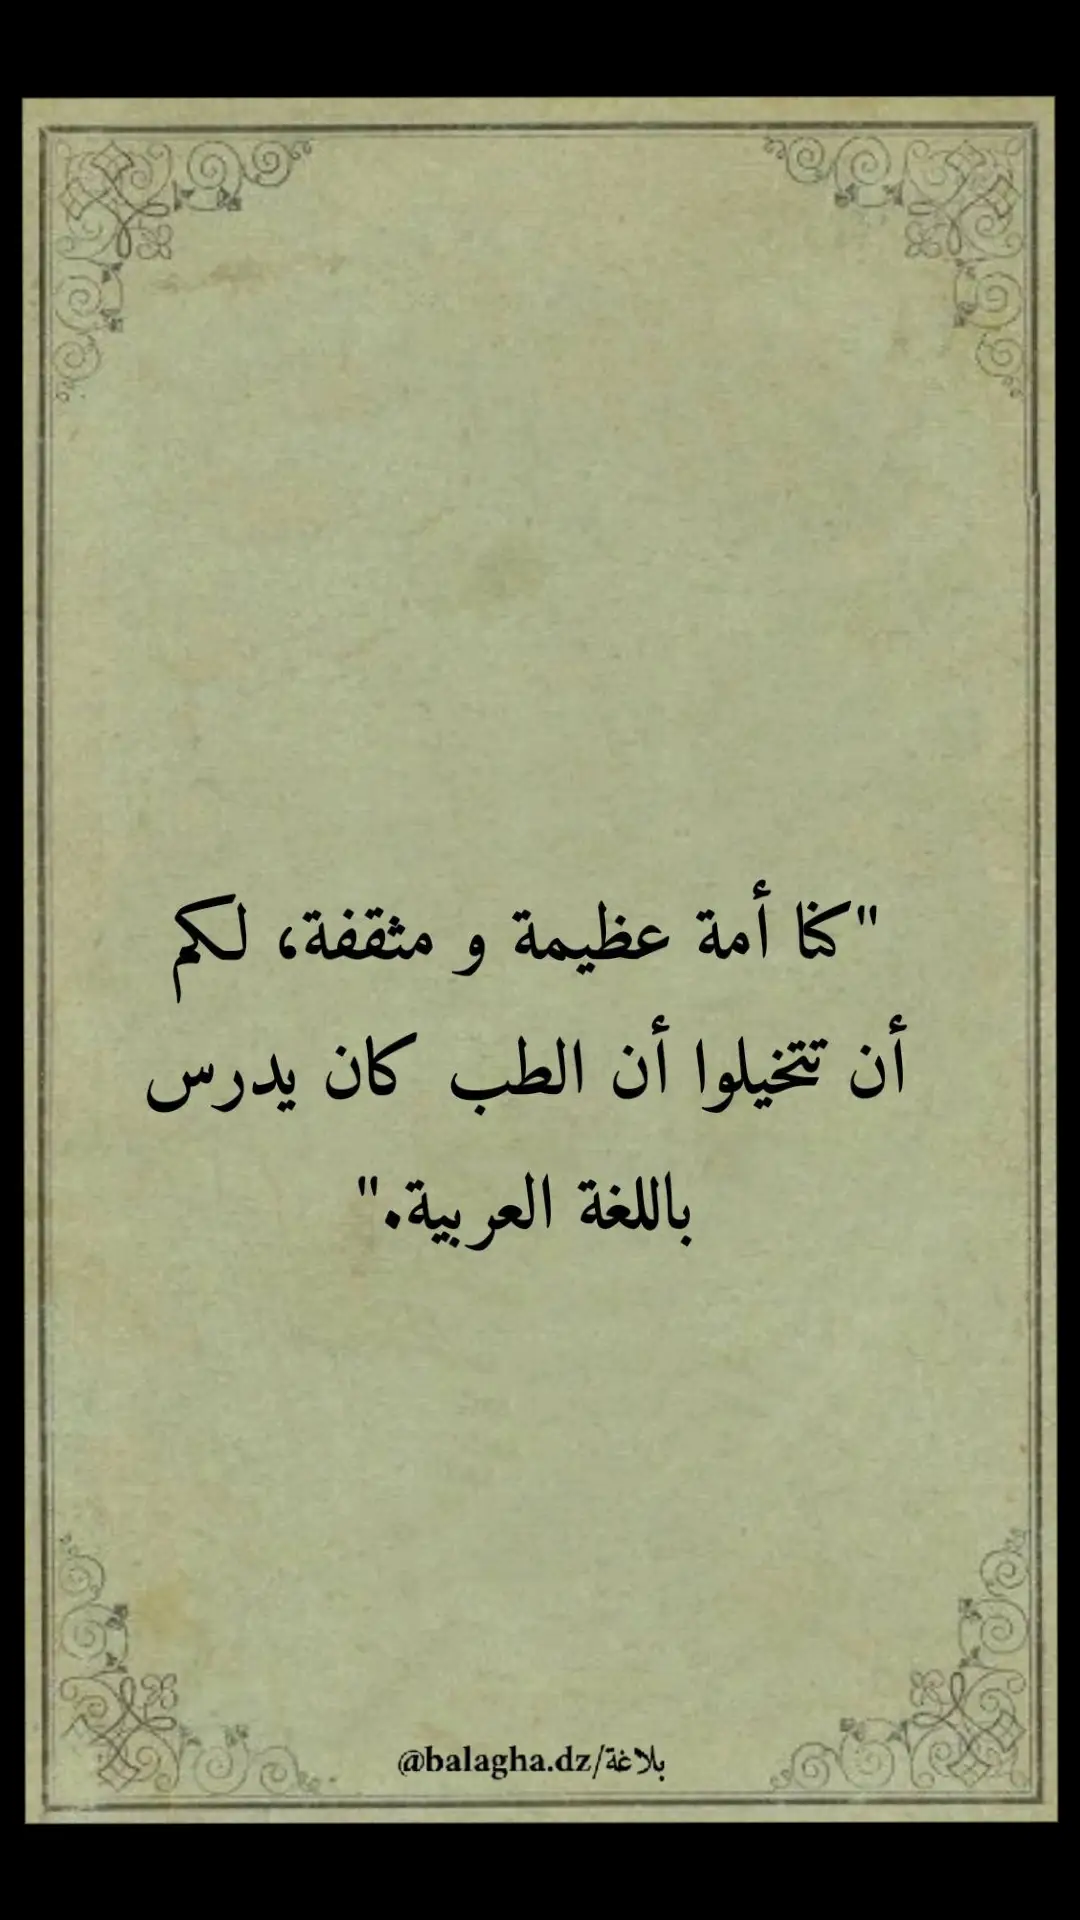 "كنا أمة عظيمة و مثقفة، لكم
أن تتخيلوا أن الطب كان يدرس
باللغة العربية."
@balagha.dz/بلاغة